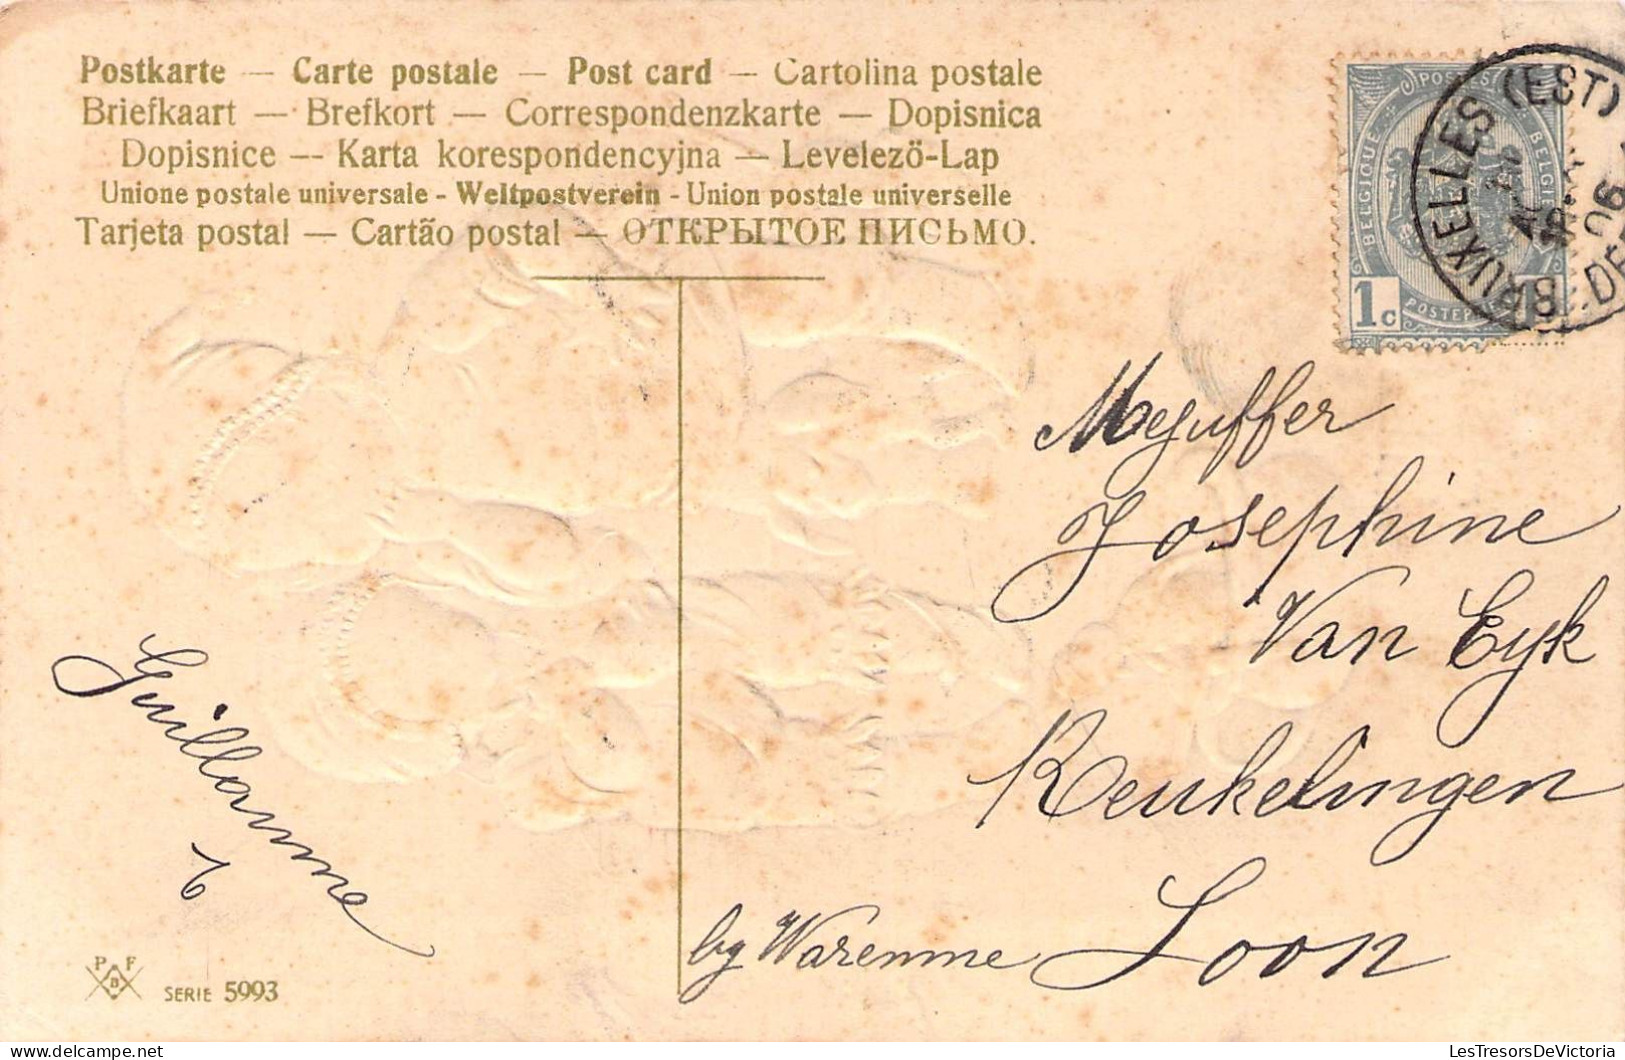 Postkarte — Carte postale — Post card — Cartolina postale
Briefkaart — Brefkort — Correspondenzkarte — Dopisnica
Dopisnice -- Karta korespondencyjna — Levelezö-Lap
Unione postale universale - Weltpostverein - Union postale universelle
Tarjeta postal — Cartão postal — ОТКРЫТОЕ ПИСЬМО.
POSTES
BELGIQUE
BELGIE
1c
BRUXELLES (EST)
06
Mejuffer
Josephine
Van Eyk
Reukelingen
Loon
by Waremme
Guillamme
P F
B
SERIE 5993
LesTresorsDeVictoria